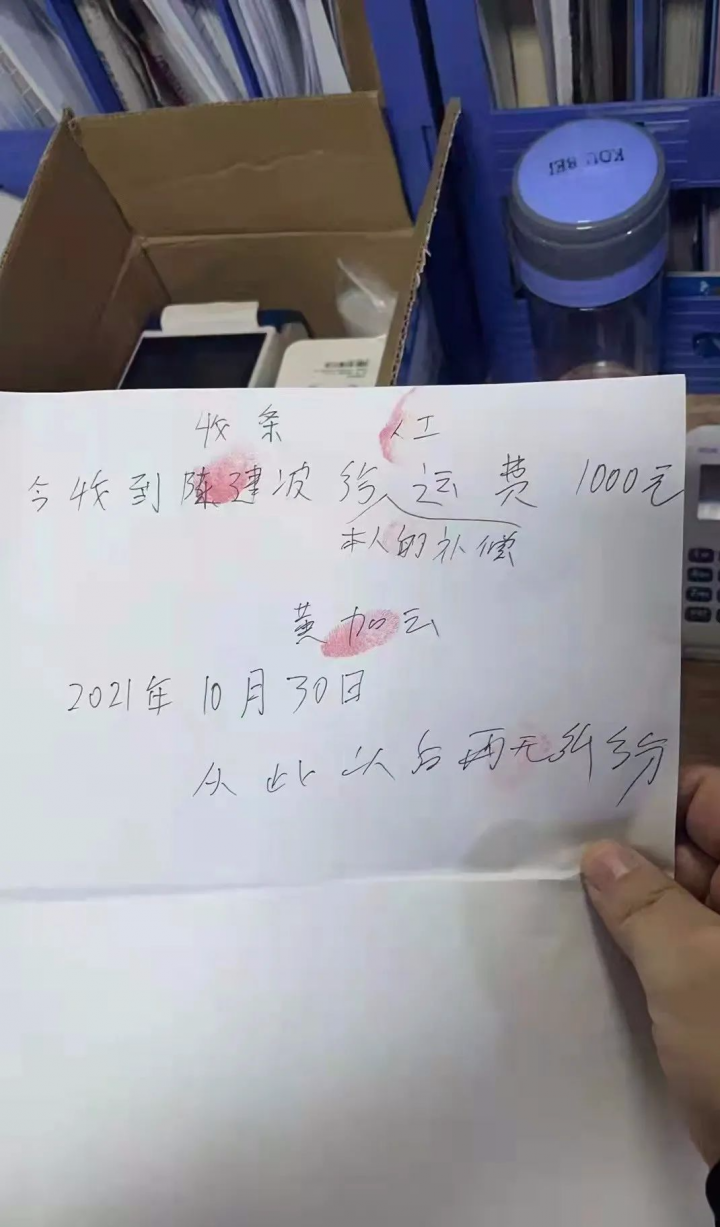 KOUBEI
收条 人工
今收到陈建波给运费 1000元
本人的补偿
黄加云
2021年10月30日
从此以后两无纠纷